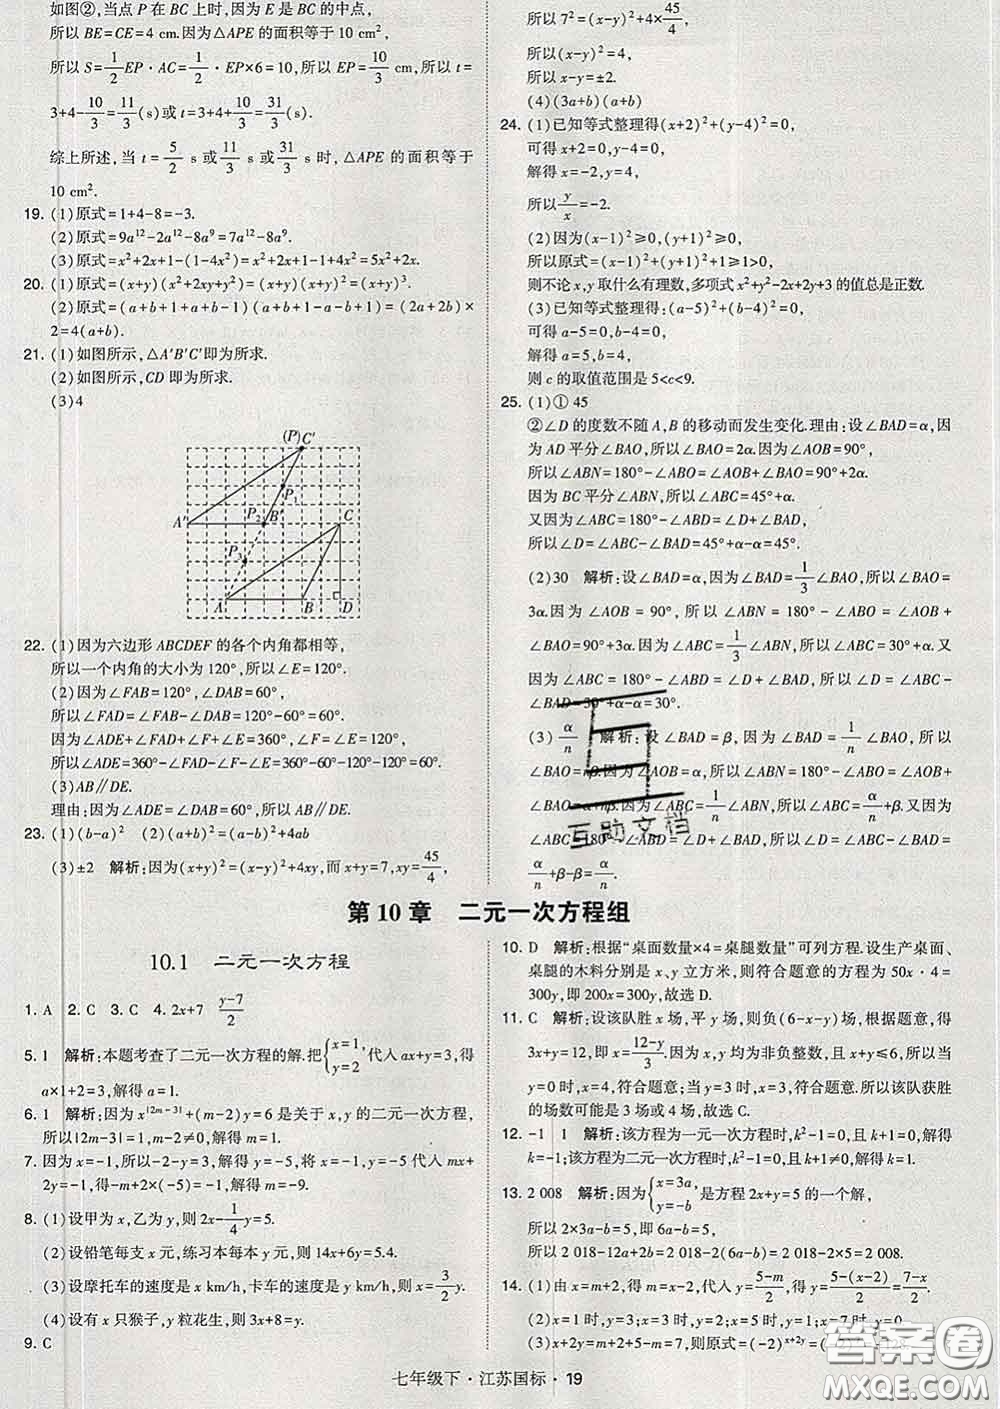 如图②,当点 P 在 BC 上时,因为 E 是 BC 的中点,
所以 BE=CE=4 cm.因为△APE 的面积等于 10 cm²,
所以 S=1/2 EP·AC=1/2·EP×6=10,所以 EP=10/3 cm,所以 t=
3+4-10/3=11/3(s)或 t=3+4+10/3=31/3(s).
综上所述,当 t=5/2 s 或 11/3 s 或 31/3 s 时,△APE 的面积等于
10 cm².
19. (1)原式=1+4-8=-3.
(2)原式=9a¹²-2a¹²-8a⁹=7a¹²-8a⁹.
(3)原式=x²+2x+1-(1-4x²)=x²+2x+1-1+4x²=5x²+2x.
20. (1)原式=(x+y)(x²+2xy+y²)=(x+y)(x+y)²=(x+y)³.
(2)原式=(a+b+1+a+b-1)(a+b+1-a-b+1)=(2a+2b)×
2=4(a+b).
21. (1)如图所示,△A′B′C′即为所求.
(2)如图所示,CD 即为所求.
(3)4
(P) C′
P₁
A′ P₂ B′ C
P₃
A B D
22. (1)因为六边形 ABCDEF 的各个内角都相等,
所以一个内角的大小为 120°,所以∠E=120°.
(2)因为∠FAB=120°,∠DAB=60°,
所以∠FAD=∠FAB-∠DAB=120°-60°=60°.
因为∠ADE+∠FAD+∠F+∠E=360°,∠F=∠E=120°,
所以∠ADE=360°-∠FAD-∠F-∠E=360°-60°-120°-120°=60°.
(3)AB∥DE.
理由:因为∠ADE=∠DAB=60°,所以 AB∥DE.
23. (1)(b-a)² (2)(a+b)²=(a-b)²+4ab
(3)±2 解析:(x+y)²=(x-y)²+4xy,而 x+y=7,xy=45/4,
所以 7²=(x-y)²+4×45/4,
所以(x-y)²=4,
所以 x-y=±2.
(4)(3a+b)(a+b)
24. (1)已知等式整理得(x+2)²+(y-4)²=0,
可得 x+2=0,y-4=0,
解得 x=-2,y=4,
所以 y/x=-2.
(2)因为(x-1)²≥0,(y+1)²≥0,
所以原式=(x-1)²+(y+1)²+1≥1>0,
则不论 x,y 取什么有理数,多项式 x²+y²-2x+2y+3 的值总是正数.
(3)已知等式整理得:(a-5)²+(b-4)²=0,
可得 a-5=0,b-4=0,
解得 a=5,b=4,
则 c 的取值范围是 5<c<9.
25. (1)① 45
②∠D 的度数不随 A,B 的移动而发生变化.理由:设∠BAD=α,因
为 AD 平分∠BAO,所以∠BAO=2α.因为∠AOB=90°,
所以∠ABN=180°-∠ABO=∠AOB+∠BAO=90°+2α.
因为 BC 平分∠ABN,所以∠ABC=45°+α.
又因为∠ABC=180°-∠ABD=∠D+∠BAD,
所以∠D=∠ABC-∠BAD=45°+α-α=45°.
(2)30 解析:设∠BAD=α,因为∠BAD=1/3∠BAO,所以∠BAO=
3α.因为∠AOB=90°,所以∠ABN=180°-∠ABO=∠AOB+
∠BAO=90°+3α.因为∠ABC=1/3∠ABN,所以∠ABC=30°+α.
又因为∠ABC=180°-∠ABD=∠D+∠BAD,所以∠D=∠ABC-
∠BAD=30°+α-α=30°.
(3)α/n 解析:设∠BAD=β,因为∠BAD=1/n∠BAO,所以
∠BAO=nβ.因为∠AOB=α,所以∠ABN=180°-∠ABO=∠AOB+
∠BAO=α+nβ.因为∠ABC=1/n∠ABN,所以∠ABC=α/n+β.又因为
∠ABC=180°-∠ABD=∠D+∠BAD,所以∠D=∠ABC-∠BAD=
α/n+β-β=α/n.
第 10 章 二元一次方程组
10.1 二元一次方程
1. A 2. C 3. C 4. 2x+7 (y-7)/2
5. 1 解析:本题考查了二元一次方程的解.把{x=1, y=2}代入 ax+y=3,得
a×1+2=3,解得 a=1.
6. 1 解析:因为 x^|2m-3|+(m-2)y=6 是关于 x,y 的二元一次方程,
所以|2m-3|=1,m-2≠0,解得 m=1.
7. 因为 x=-1,所以-2-y=3,解得 y=-5,将 x=-1,y=-5 代入 mx+
2y=-1,得-m+2×(-5)=-1,解得 m=-9.
8. (1)设甲为 x,乙为 y,则 2x-1/4 y=5.
(2)设铅笔每支 x 元,练习本每本 y 元,则 14x+6y=5.4.
(3)设摩托车的速度是 x km/h,卡车的速度是 y km/h,则 x=3/2 y.
(4)设有 x 只猴子,y 粒花生,则 3x+8=y.
9. C
10. D 解析:根据“桌面数量×4=桌腿数量”可列方程.设生产桌面、
桌腿的木料分别是 x、y 立方米,则符合题意的方程为 50x·4=
300y,即 200x=300y,故选 D.
11. C 解析:设该队胜 x 场,平 y 场,则负(6-x-y)场,根据题意,得
3x+y=12,即 x=(12-y)/3.因为 x,y 均为非负整数,且 x+y≤6,所以当
y=0 时,x=4,符合题意;当 y=3 时,x=3,符合题意.所以该队获胜
的场数可能是 3 场或 4 场,故选 C.
12. -1 1 解析:该方程为一元一次方程时,k²-1=0,且 k+1=0,解得
k=-1;该方程为二元一次方程时,k²-1=0,且 k+1≠0,解得 k=1.
13. 2 008 解析:因为{x=3a, y=-b}是方程 2x+y=5 的一个解,
所以 2×3a-b=5,即 6a-b=5,
所以 2 018-12a+2b=2 018-2(6a-b)=2 018-2×5=2 008.
14. (1)由 x=m+2,得 m=x-2,代入 y=(5-m)/2,得 y=(5-(x-2))/2=(7-x)/2
(2)x=1 时,y=3;x=3 时,y=2;x=5 时,y=1;
(3)x+2y=m+2+5-m=7,则原式=(-2)^(x+2y)=
互助文档
七年级下·江苏国标·19
答案圈
MXQE.COM